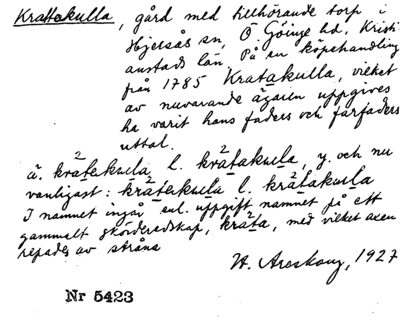 Krattakulla, gård med tillhörande torp i
Hjelsås sn, Ö Göinge hd, Kristi-
anstads län. På en köpehandling
från 1785 Kratakulla, vilket
av nuvarande ägaren uppgives
ha varit hans faders och farfaders
uttal.
ä. krätakulla l. krätakulla, y. och nu
vanligast: krätakulla l. krätakulla
I namnet ingår enl. uppgift namnet på ett
gammalt skörderedskap, kräta, med vilket axen
repades av stråna
W. Areskoug, 1927
Nr 5423